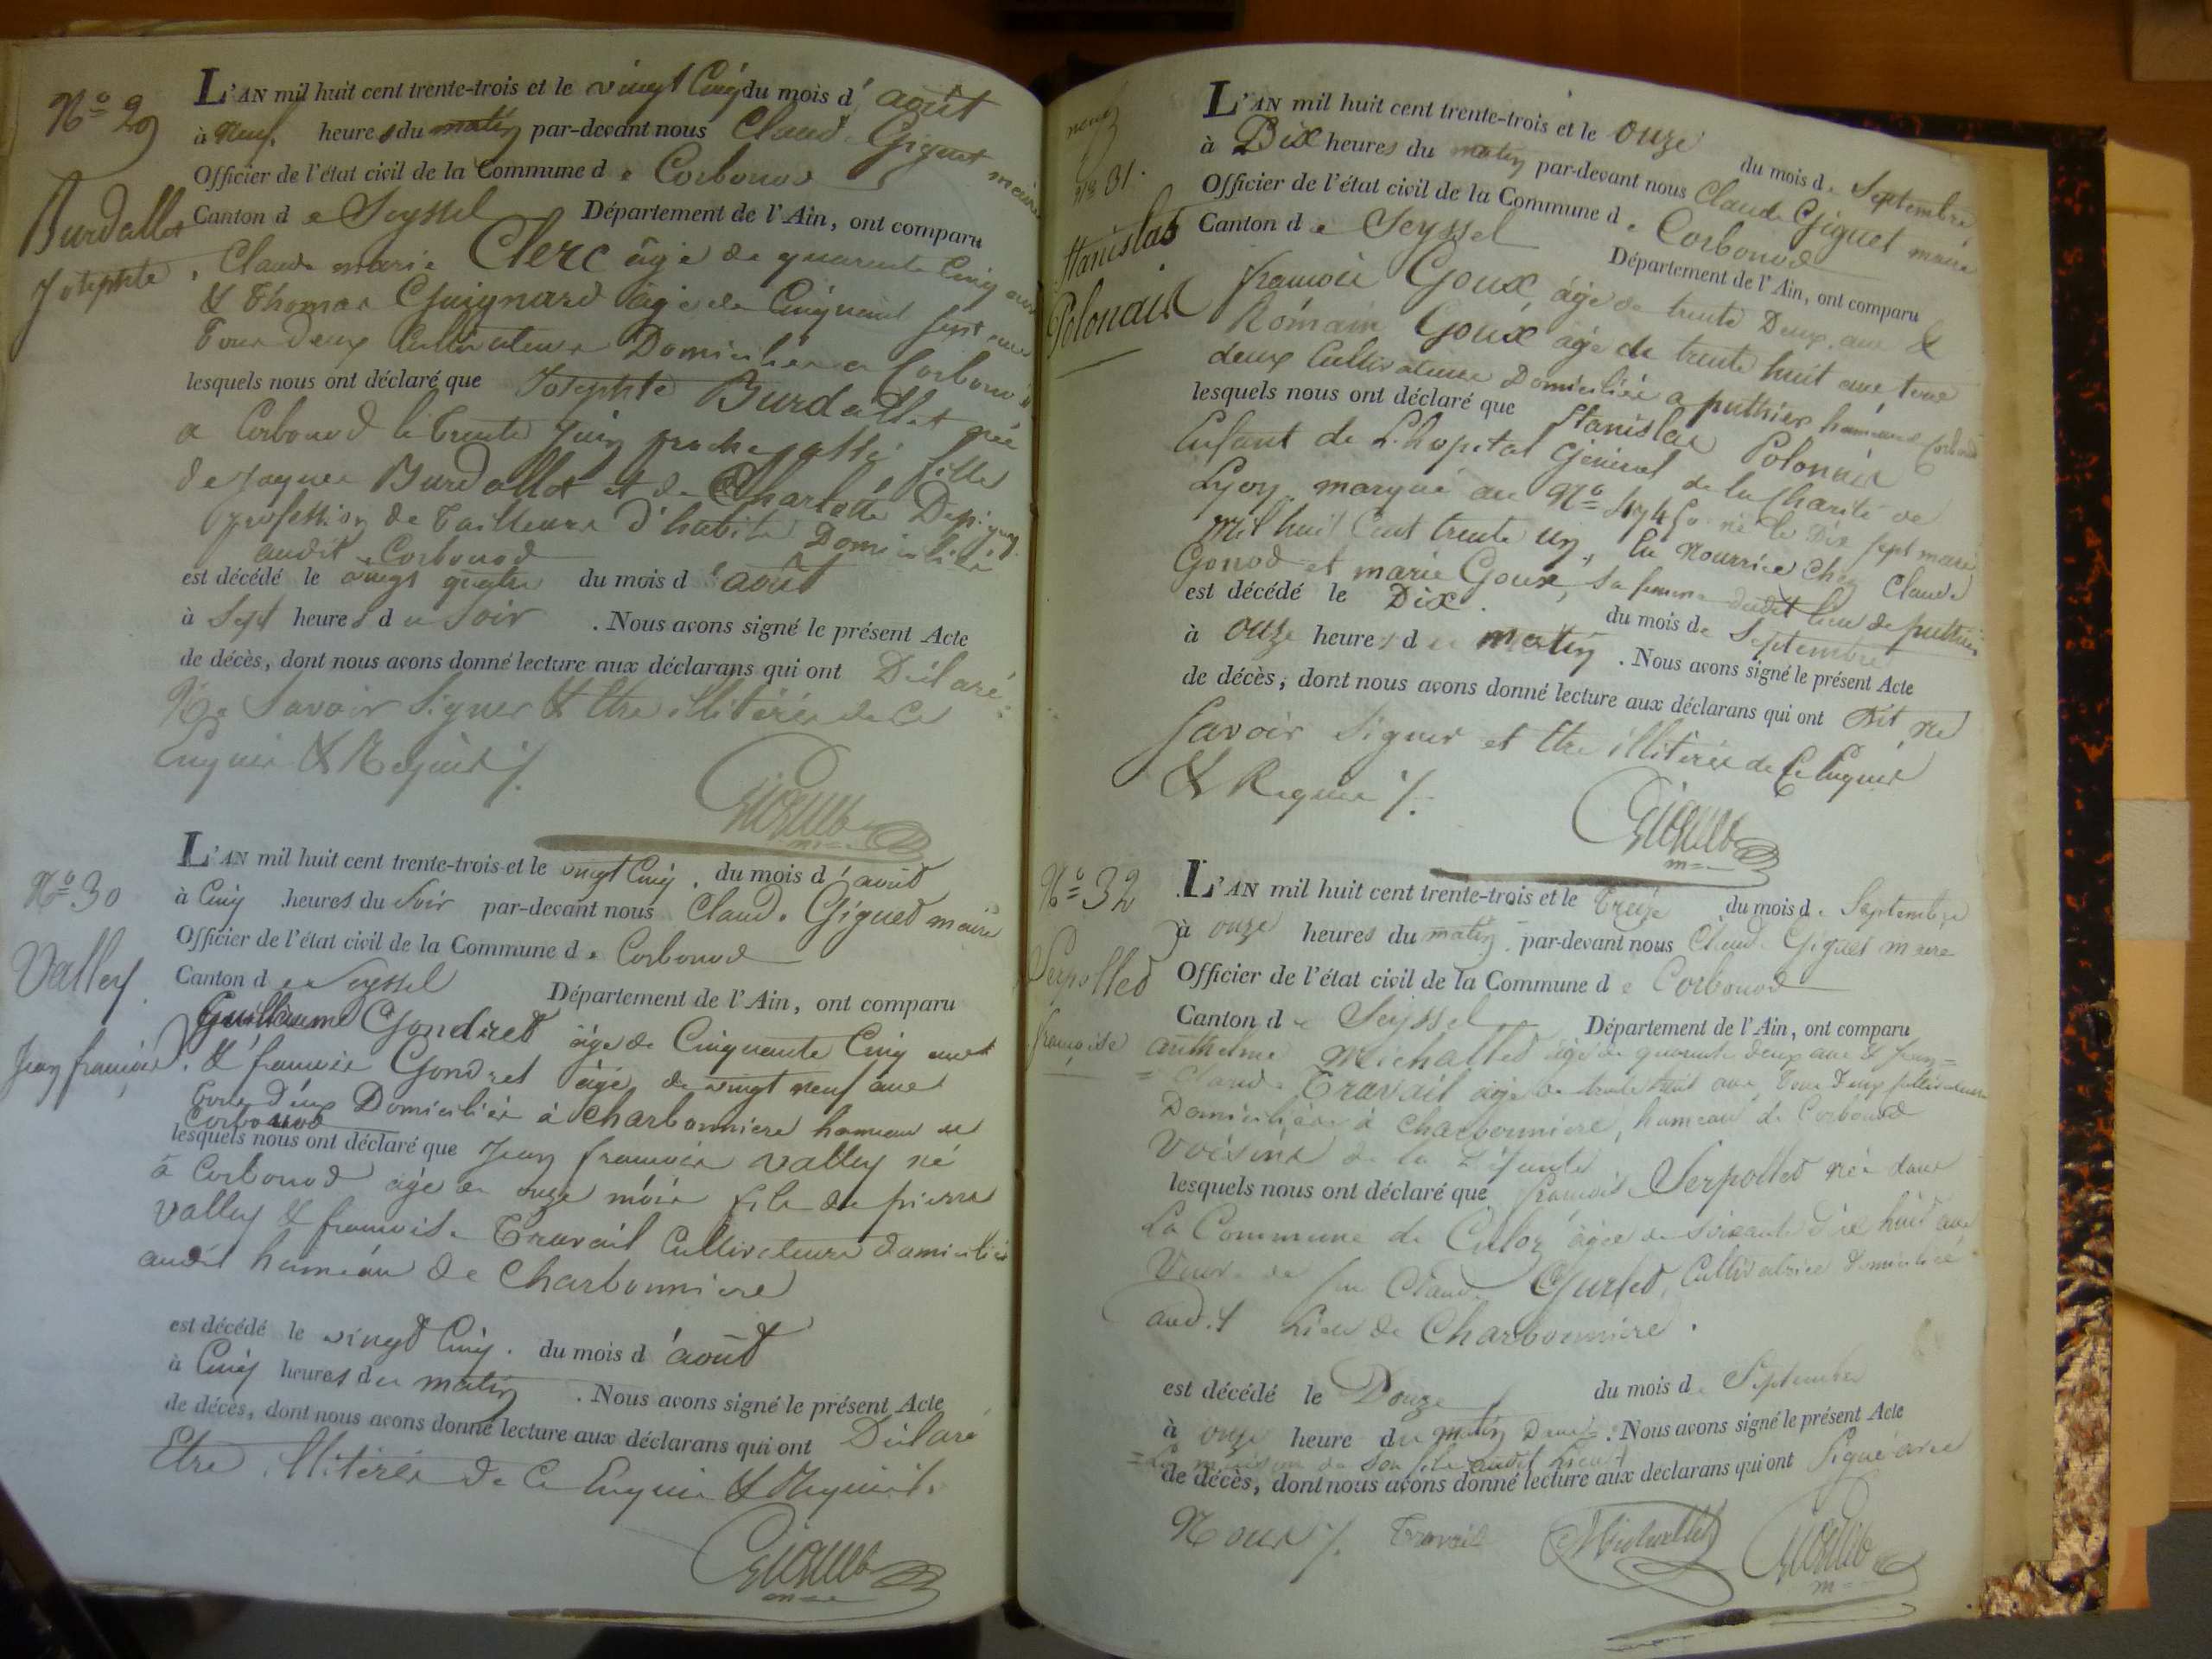 Nº 29
Burdallet
Josephte
L'AN mil huit cent trente-trois et le vingt Cinq du mois d'août
à neuf heures du matin par-devant nous Claude Giguet maire
Officier de l'état civil de la Commune de Corbonod
Canton de Seyssel Département de l'Ain, ont comparu
Claude marie Clerc âgé de quarente Cinq ans
& Thomas Guignard âgé de Cinquent sept ans
Tous deux Cultivateurs Domiciliés a Corbonod
lesquels nous ont déclaré que Josephte Burdallet née
a Corbonod le trente Juin proche passé fille
de Jaques Burdallet et de Charlotte
profession de tailleurs d'habits Domiciliés
audit Corbonod
est décédé le vingt quatre du mois d'août
à Sept heures du Soir . Nous avons signé le présent Acte
de décès, dont nous avons donné lecture aux déclarans qui ont Déclaré
Ne Savoir Signer & Etre illitérés de Ce
Enquis & Requis /.
Giguet
Nº 30
Valley
Jean françois
L'AN mil huit cent trente-trois et le vingt Cinq du mois d'août
à Cinq heures du Soir par-devant nous Claude Giguet maire
Officier de l'état civil de la Commune de Corbonod
Canton de Seyssel Département de l'Ain, ont comparu
Guillaume Gondret âgé de Cinquante Cinq ans
& francois Gondret âgé de vingt neuf ans
tous deux Domiciliés à Charbonniere hameau de
Corbonod
lesquels nous ont déclaré que Jean francois Valley né
à Corbonod âgé de onze mois fils de pierre
Valley & francoise Travail Cultivateurs domiciliés
audit hameau de Charbonniere
est décédé le vingt Cinq du mois d'août
à Cinq heures du matin . Nous avons signé le présent Acte
de décès, dont nous avons donné lecture aux déclarans qui ont Déclaré
Etre illitérés de Ce Enquis & Requis /.
Giguet
Nº 31
Stanislas
Polonais
L'AN mil huit cent trente-trois et le onze du mois de Septembre
à Dix heures du matin par-devant nous Claude Giguet maire
Officier de l'état civil de la Commune de Corbonod
Canton de Seyssel Département de l'Ain, ont comparu
francois Goux, âgé de trente Deux ans &
Romain Goux âgé de trente huit ans tous
deux Cultivateurs Domiciliés a puthier hameau de Corbonod
lesquels nous ont déclaré que Stanislas Polonais
Enfant de L'hopital Général de la Charité de
Lyon marqué au Nº né le Dix Sept mars
Mil huit Cent trente un, En Nourrice Chez Claude
Gonod et marie Goux, Sa femme dudit lieu de puthier
est décédé le Dix du mois de Septembre
à onze heures du matin . Nous avons signé le présent Acte
de décès, dont nous avons donné lecture aux déclarans qui ont Dit ne
Savoir Signer et Etre illitérés de Ce Enquis
& Requis /.
Giguet
Nº 32
Serpollet
françoise
L'AN mil huit cent trente-trois et le Treize du mois de Septembre
à onze heures du matin par-devant nous Claude Giguet maire
Officier de l'état civil de la Commune de Corbonod
Canton de Seyssel Département de l'Ain, ont comparu
anthelme Michallet âgé de quarante deux ans & Jean=
=Claude Travail âgé de trente huit ans, Tous Deux Cultivateurs
Domiciliés à Charbonniere, hameau de Corbonod
Voisins de la Défunte
lesquels nous ont déclaré que francoise Serpollet née dans
La Commune de Culoz âgée de Soixante Dix huit ans
Veuve de feu Claude Gurlet, Cultivatrice Domicilié
audit Lieu de Charbonniere.
est décédé le Douze du mois de Septembre
à onze heure du matin Dans= . Nous avons signé le présent Acte
=La maison de Son fils audit Lieu
de décès, dont nous avons donné lecture aux déclarans qui ont Signé avec
Nous /. Travail Michallet Giguet